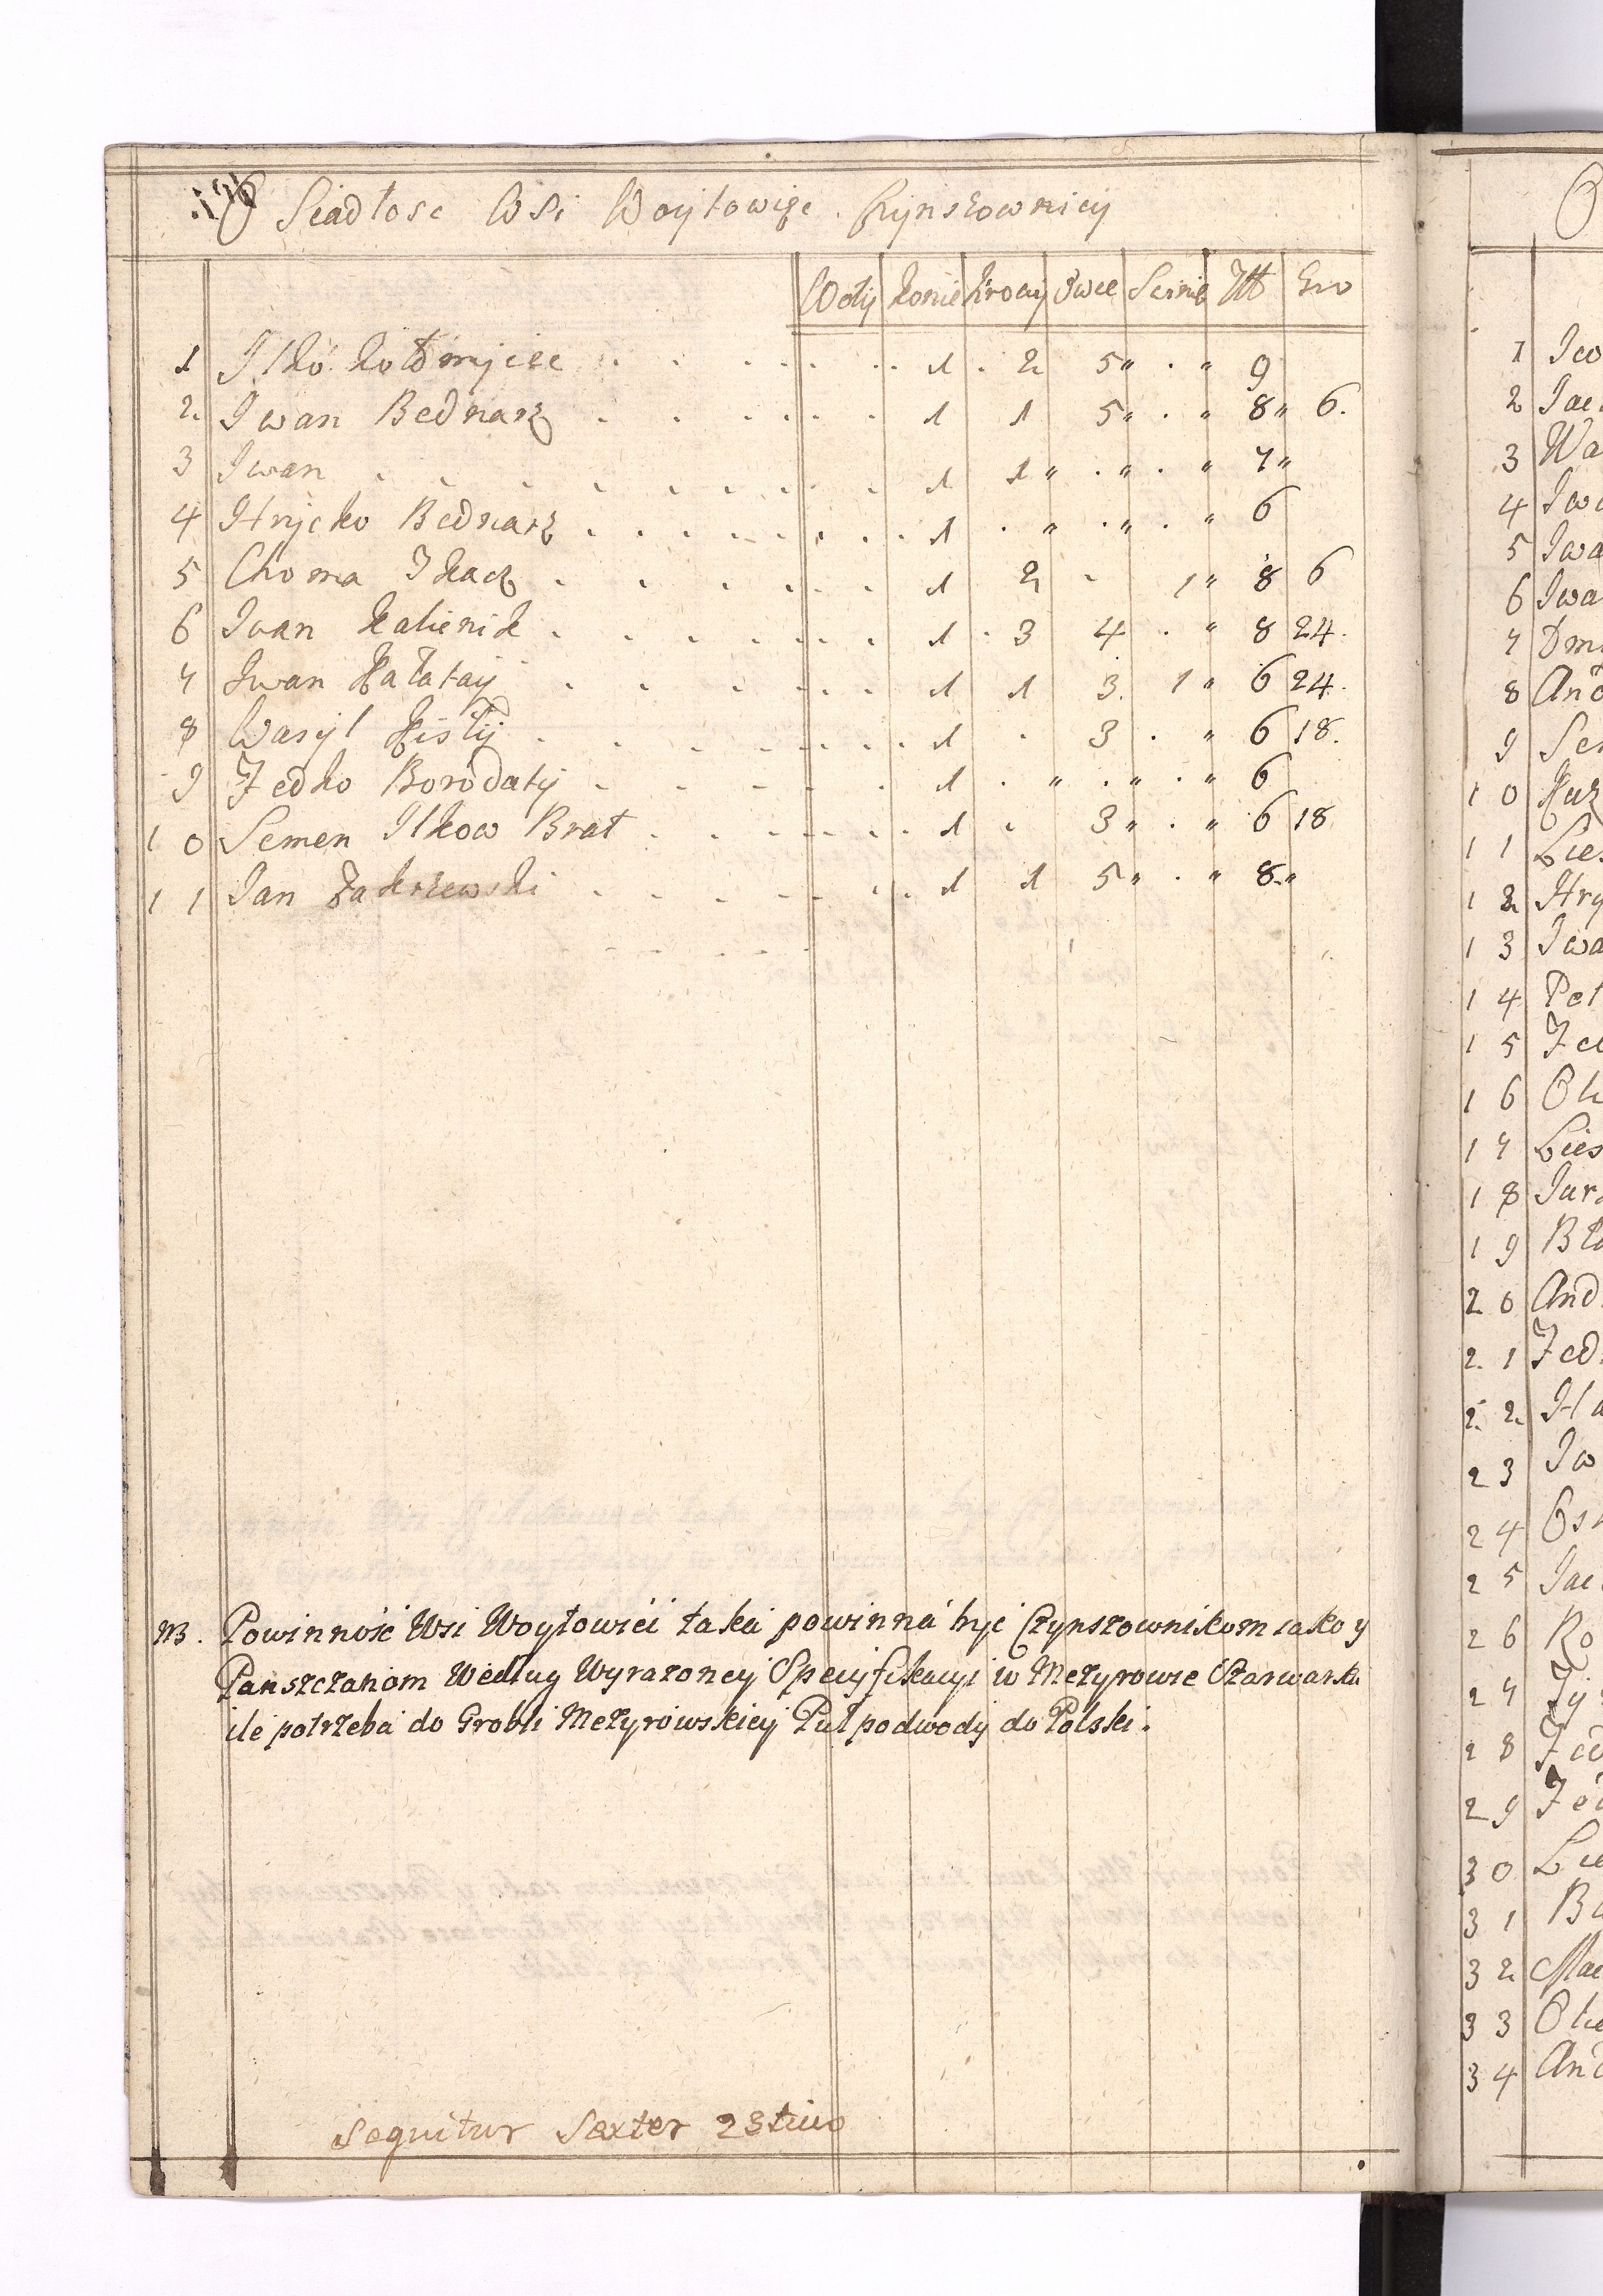 Osiadłosc Wsi Woytowice Czynszownicy
Woły Konie Krowy Owce Swinie Złł Gro
1 Ilko Kołomyiec 1 2 5 " " 9
2 Iwan Bednarz 1 1 5 " " 8 " 6
3 Iwan 1 1 " " " 7 "
4 Hryćko Bednarz 1 " " " 6
5 Choma Tkacz 1 2 1 " 8 6
6 Iwan Kalienik 1 3 4 " 8 24
7 Iwan Hałatay 1 1 3 1 " 6 24
8 Wasyl Kisłiy 1 3 " 6 18
9 Fedko Borodatiy 1 " " " 6
10 Semen Ilkow Brat 1 3 " " 6 18
11 Jan Zakrzewski 1 1 5 " " 8 "
NB. Powinność Wsi Woytowići taka powinna być Czynszownikom iako y
Panszczanom Według Wyrazoney Specyfikacyi w Mezyrowie Szarwarku
ile potrzeba do Grobli Mezyrowskiey Puł podwody do Polski.
Sequitur Sexter 23tius
1 Iw
2 Jac
3 Wa
4 Iwa
5 Iwa
6 Iwa
7 Dm
8 And
9 Sem
10 Kuz
11 Les
12 Hry
13 Iwa
14 Pet
15 Fe
16 Ol
17 Lies
18 Jur
19 Bła
20 And
21 Fed
22 Il
23 Iw
24 Os
25 Jac
26 Ro
27 Ty
28 Fed
29 Fed
30 Le
31 Ba
32 Mac
33 Ole
34 And